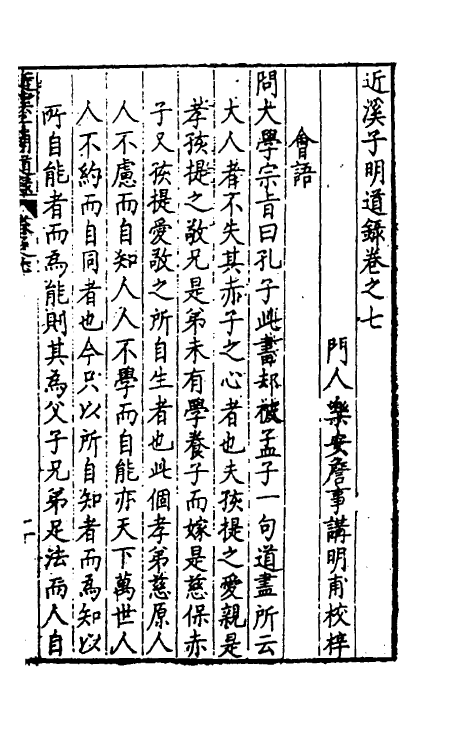 近溪子明道錄卷之七
門人樂安詹事講明甫校梓
會語
問大學宗旨曰孔子此書却被孟子一句道盡所云
大人者不失其赤子之心者也夫孩提之愛親是
孝孩提之敬兄是弟未有學養子而嫁是慈保赤
子又孩提愛敬之所自生者也此個孝弟慈原人
人不慮而自知人人不學而自能亦天下萬世人
人不約而自同者也今只以所自知者而為知以
所自能者而為能則其為父子兄弟足法而人自